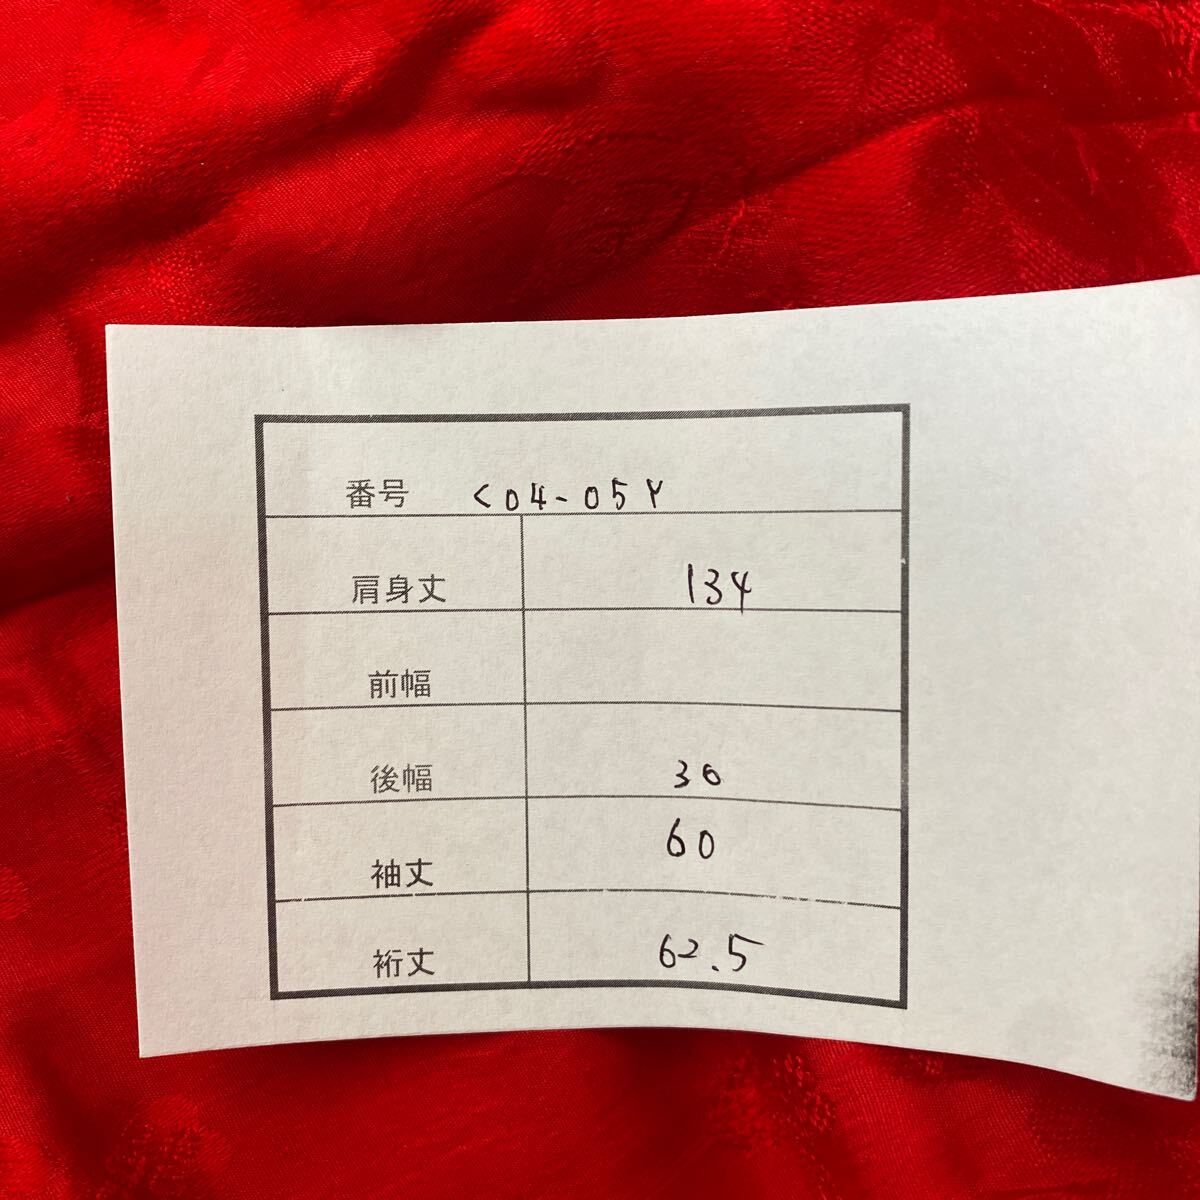 番号 C04-05Y
肩身丈 134
前幅
後幅 30
袖丈 60
裄丈 62.5